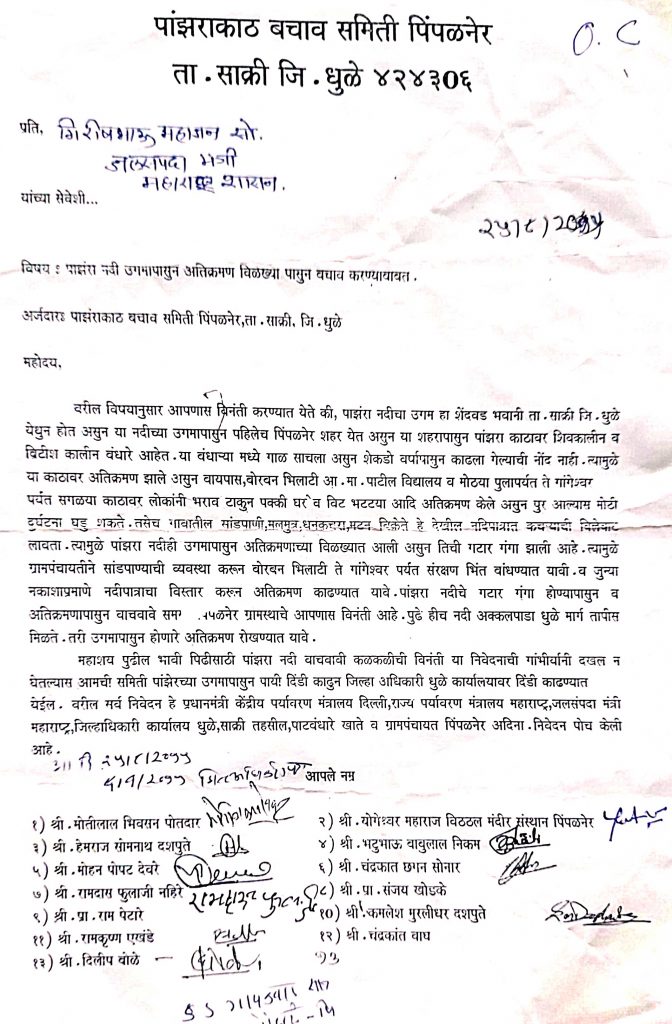 पांझराकाठ बचाव समिती पिंपळनेर
O. C
ता.साक्री जि.धुळे ४२४३०६
प्रति, गिरीषभाऊ महाजन सो.
जलसंपदा मंत्री
महाराष्ट्र शासन.
यांच्या सेवेशी...
विषय : पाझंरा नदी उगमापासुन अतिक्रमण विळख्या पासुन बचाव करण्याबाबत.
अर्जदारः पाझंराकाठ बचाव समिती पिंपळनेर,ता.साक्री. जि.धुळे
महोदय,
वरील विषयानुसार आपणास विनंती करण्यात येते की, पाझंरा नदीचा उगम हा शेंदवड भवानी ता.साक्री जि.धुळे
येथुन होत असुन या नदीच्या उगमापासुन पहिलेच पिंपळनेर शहर येत असुन या शहरापासुन पांझरा काठावर शिवकालीन व
ब्रिटीश कालीन वंधारे आहेत. या वंधाऱ्या मध्ये गाळ साचला असुन शेकडो वर्षापासुन काढला गेल्याची नोंद नाही. त्यामुळे
या काठावर अतिक्रमण झाले असुन वायपास,वोरवन भिलाटी आ.मा.पाटील विद्यालय व मोठया पुलापर्यंत ते गांगेश्वर
पर्यंत सगळया काठावर लोकांनी भराव टाकुन पक्की घरे व विट भटटया आदि अतिक्रमण केले असुन पुर आल्यास मोटी
दुर्घटना घडु शकते. तसेच गावातील सांडपाणी,मलमुत्र,घनकचरा,मटन विक्रेते हे देखील नदिपात्रात कचऱ्याची विल्हेवाट
लावता.त्यामुळे पांझरा नदीही उगमापासुन अतिक्रमणाच्या विळख्यात आली असुन तिची गटार गंगा झाली आहे.त्यामुळे
ग्रामपंचायतीने सांडपाण्याची व्यवस्था करून वोरवन भिलाटी ते गांगेश्वर पर्यंत संरक्षण भिंत वांधण्यात यावी.व जुन्या
नकाशाप्रमाणे नदीपात्राचा विस्तार करून अतिक्रमण काढण्यात यावे.पांझरा नदीचे गटार गंगा होण्यापासुन व
अतिक्रमणापासुन वाचवावे ग्रामस्थाचे आपणास विनंती आहे.पुढे हीच नदी अक्कलपाडा धुळे मार्ग तापीस
मिळते. तरी उगमापासुन होणारे अतिक्रमण रोखण्यात यावे.
महाशय पुढील भावी पिढीसाठी पांझरा नदी वाचवावी कळकळीची विनंती या निवेदनाची गांभीर्यानी दखल न
घेतल्यास आमची समिती पांझरेच्या उगमापासुन पायी दिंडी काढुन जिल्हा अधिकारी धुळे कार्यालयावर दिंडी काढण्यात
येईल. वरील सर्व निवेदन हे प्रधानमंत्री केंद्रीय पर्यावरण मंत्रालय दिल्ली,राज्य पर्यावरण मंत्रालय महाराष्ट्र,जलसंपदा मंत्री
महाराष्ट्र,जिल्हाधिकारी कार्यालय धुळे,साक्री तहसील,पाटवंधारे खाते व ग्रामपंचायत पिंपळनेर अदिना.निवेदन पोच केली
आहे.
आपले नम्र
१) श्री.मोतीलाल भिवसन पोतदार
२) श्री.योगेश्वर महाराज विठठल मंदीर संस्थान पिंपळनेर
३) श्री.हेमराज सोमनाथ दशपुते
४) श्री.भटुभाऊ वावुलाल निकम
५) श्री.मोहन पोपट देवरे
६) श्री.चंद्रकात छगन सोनार
७) श्री.रामदास फुलाजी नहिरे
८) श्री.प्रा.संजय खोडके
९) श्री.प्रा.राम पेटारे
१०) श्री.कमलेश मुरलीधर दशपुते
११) श्री.रामकृष्ण एखंडे
१२) श्री.चंद्रकांत वाघ
१३) श्री.दिलीप वोळे